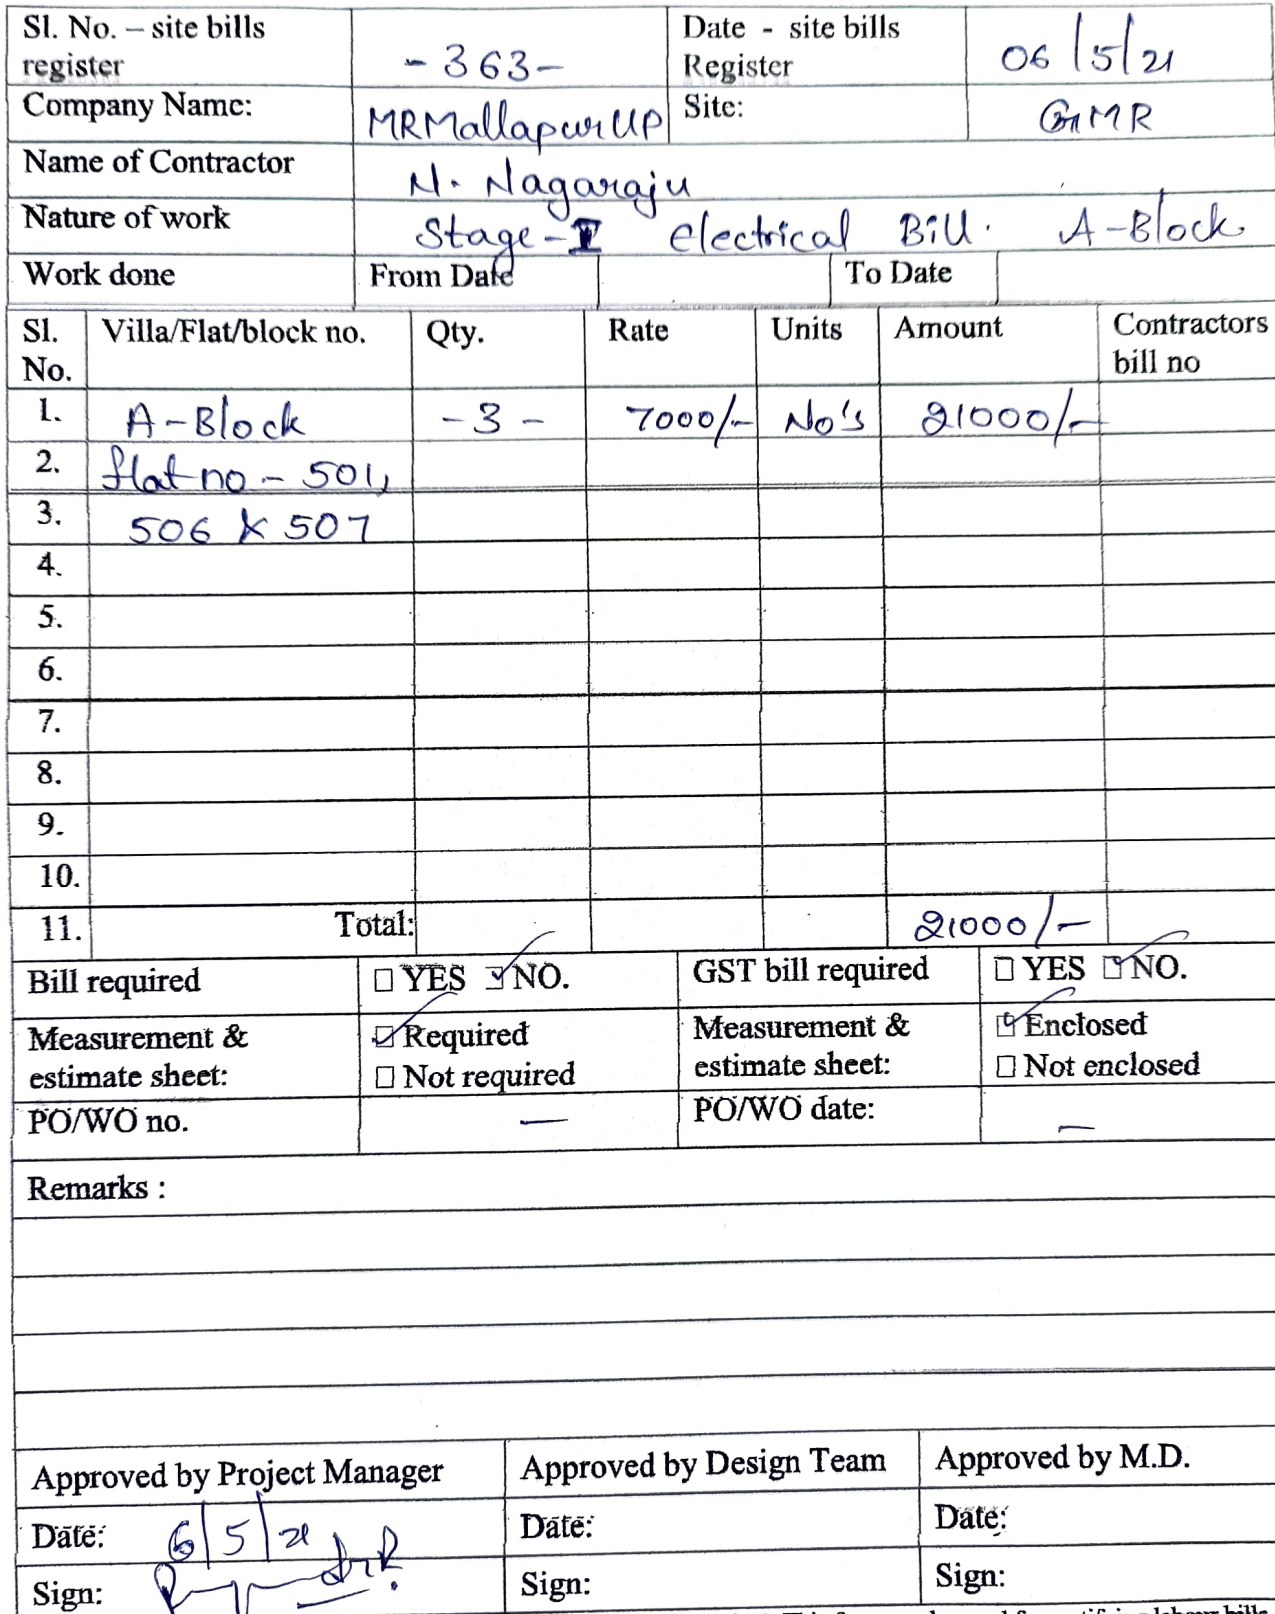 Sl. No. – site bills register -363- Date - site bills Register 06/5/21
Company Name: MRMallapur UP Site: GMR
Name of Contractor N. Nagaraju
Nature of work Stage-I Electrical Bill. A-Block
Work done From Date To Date
Sl. No. Villa/Flat/block no. Qty. Rate Units Amount Contractors bill no
1. A-Block -3- 7000/- No's 21000/-
2. flat no - 501,
3. 506 & 507
4.
5.
6.
7.
8.
9.
10.
11. Total: 21000/-
Bill required ☐ YES ☑ NO. GST bill required ☐ YES ☑ NO.
Measurement & estimate sheet: ☑ Required ☐ Not required Measurement & estimate sheet: ☑ Enclosed ☐ Not enclosed
PO/WO no. — PO/WO date: —
Remarks :
Approved by Project Manager Approved by Design Team Approved by M.D.
Date: 6/5/21 Date: Date:
Sign: Sign: Sign: